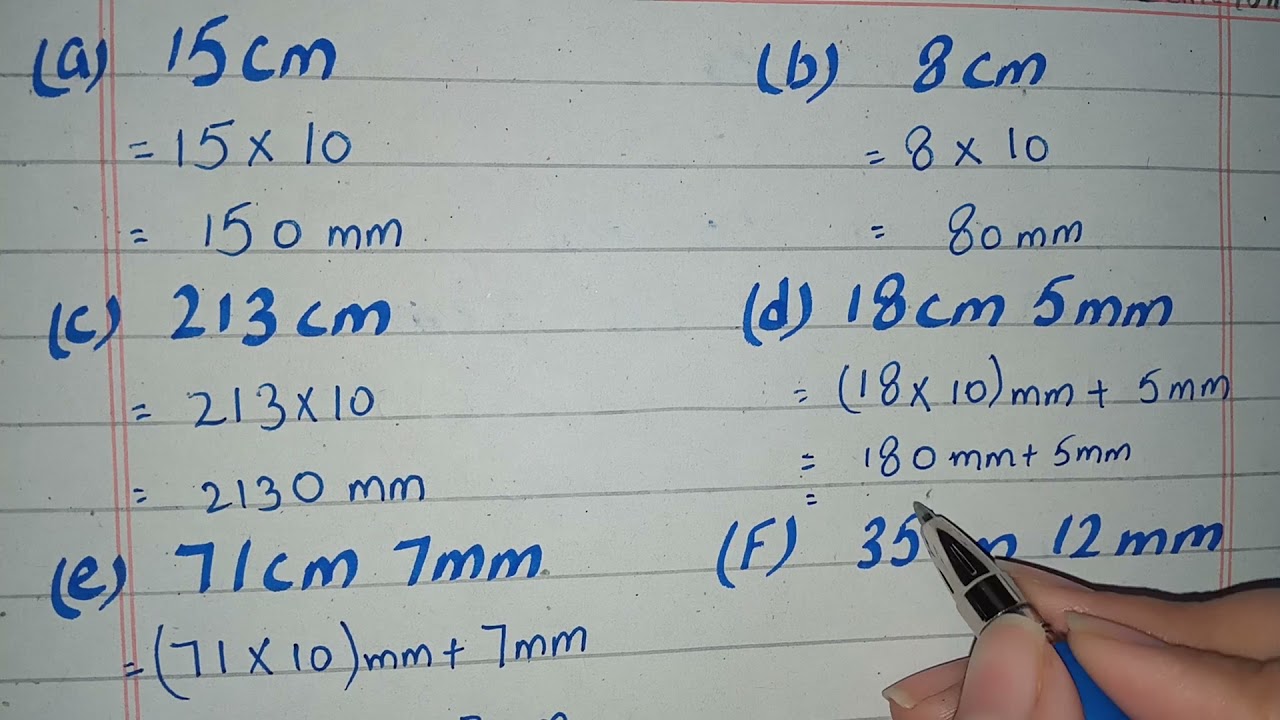 (a) 15 cm
= 15 × 10
= 150 mm
(b) 8 cm
= 8 × 10
= 80 mm
(c) 213 cm
= 213 × 10
= 2130 mm
(d) 18 cm 5 mm
= (18 × 10) mm + 5 mm
= 180 mm + 5 mm
=
(e) 71 cm 7 mm
= (71 × 10) mm + 7 mm
(F) 35 12 mm